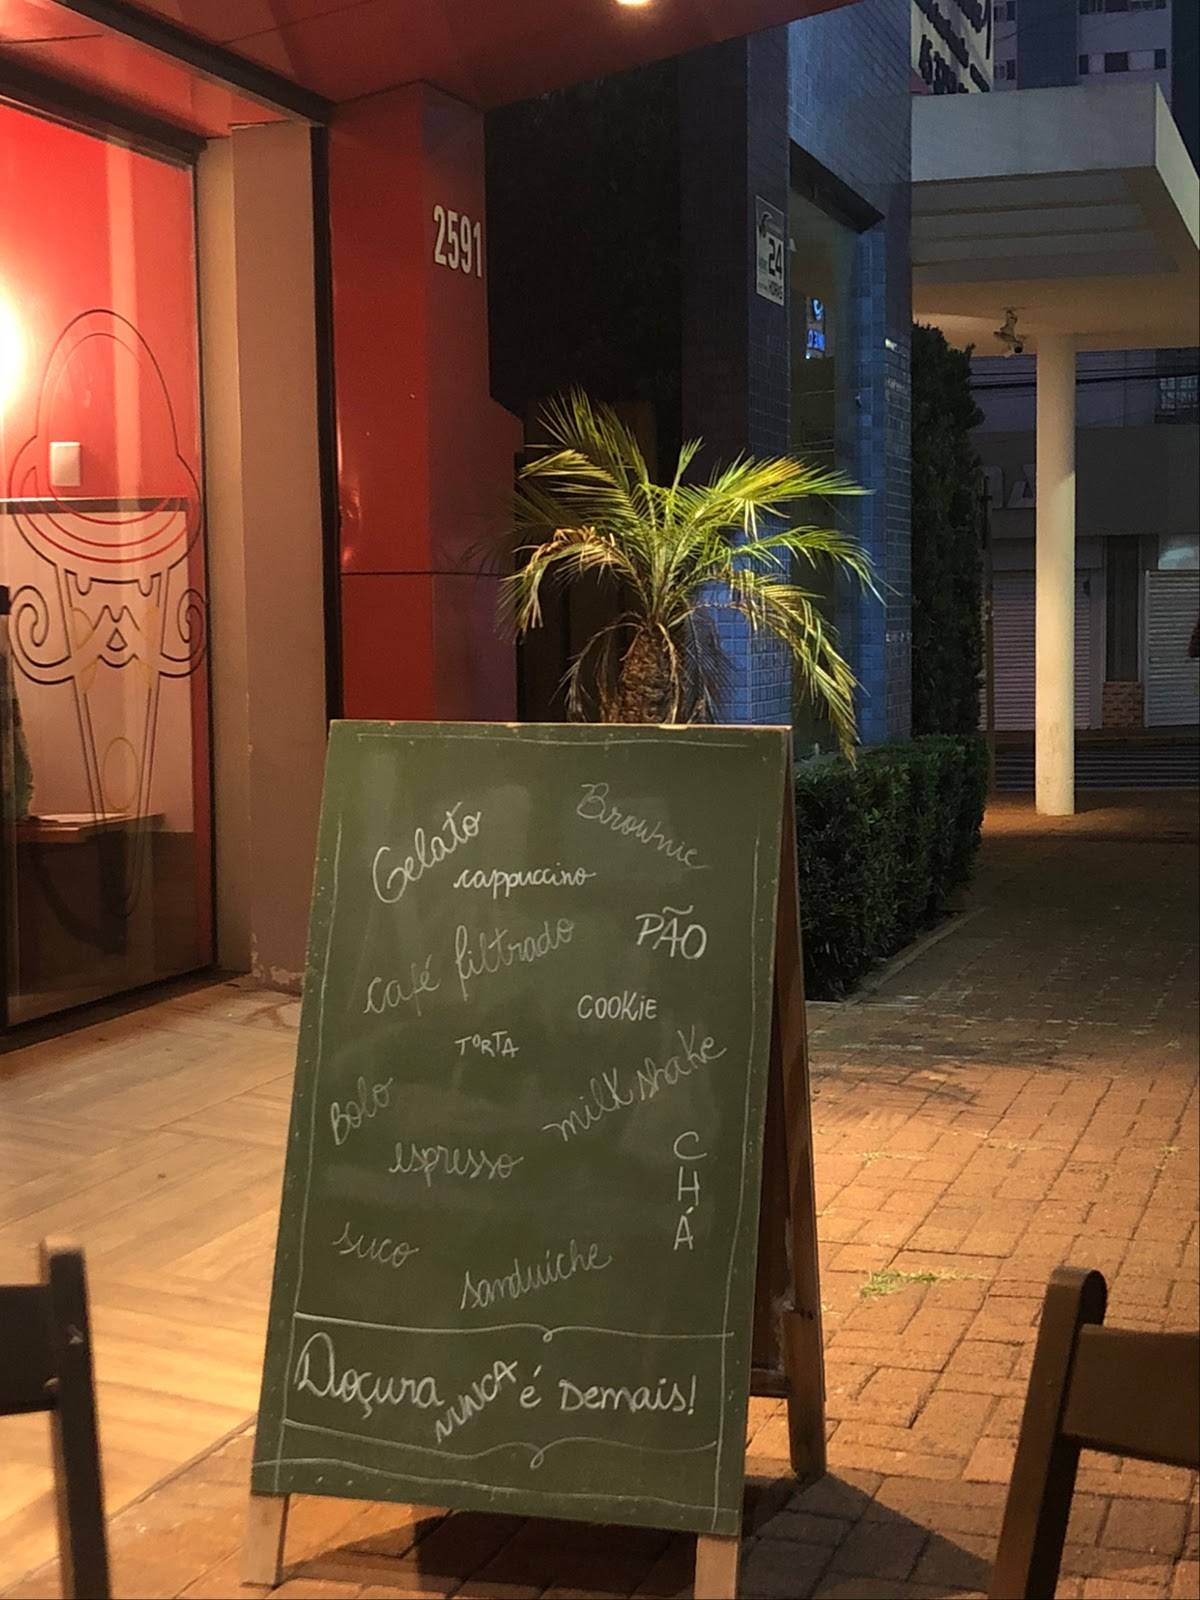 2591
24
HORAS
Gelato
Brownie
cappuccino
café filtrado
PÃO
COOKIE
TORTA
Bolo
milkshake
espresso
CHÁ
suco
sanduiche
Doçura NUNCA é Demais!